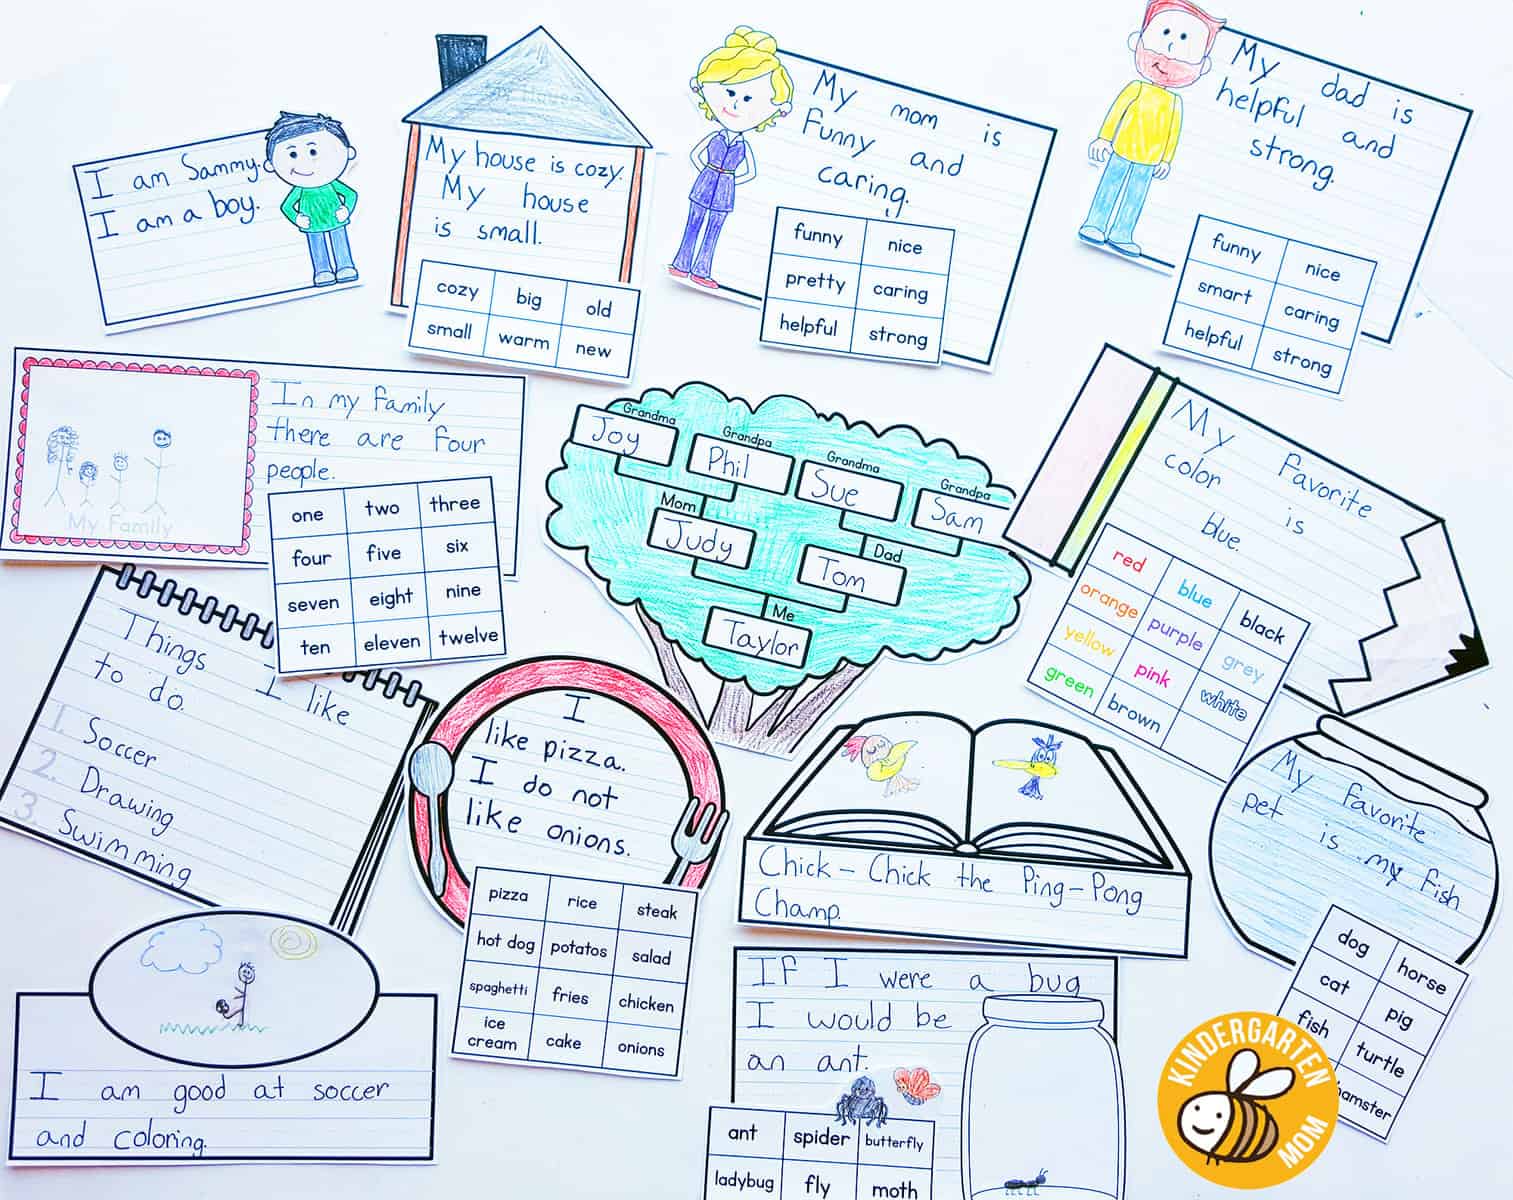 I am Sammy.
I am a boy.
My house is cozy.
My house
is small.
cozy big old
small warm new
My mom is
Funny and
caring.
funny nice
pretty caring
helpful strong
My dad is
helpful and
strong.
funny nice
smart caring
helpful strong
My Family
In my family
there are four
people.
one two three
four five six
seven eight nine
ten eleven twelve
Grandma Grandpa Grandma Grandpa
Joy Phil Sue Sam
Mom Dad
Judy Tom
Me
Taylor
My favorite
color is
blue.
red blue black
orange purple grey
yellow pink white
green brown
Things I like
to do.
1. Soccer
2. Drawing
3. Swimming
I
like pizza.
I do not
like onions.
pizza rice steak
hot dog potatos salad
spaghetti fries chicken
ice cream cake onions
Chick-Chick the Ping-Pong
Champ.
My favorite
pet is my fish
dog horse
cat pig
fish turtle
hamster
I am good at soccer
and coloring.
If I were a bug
I would be
an ant.
ant spider butterfly
ladybug fly moth
KINDERGARTEN
MOM